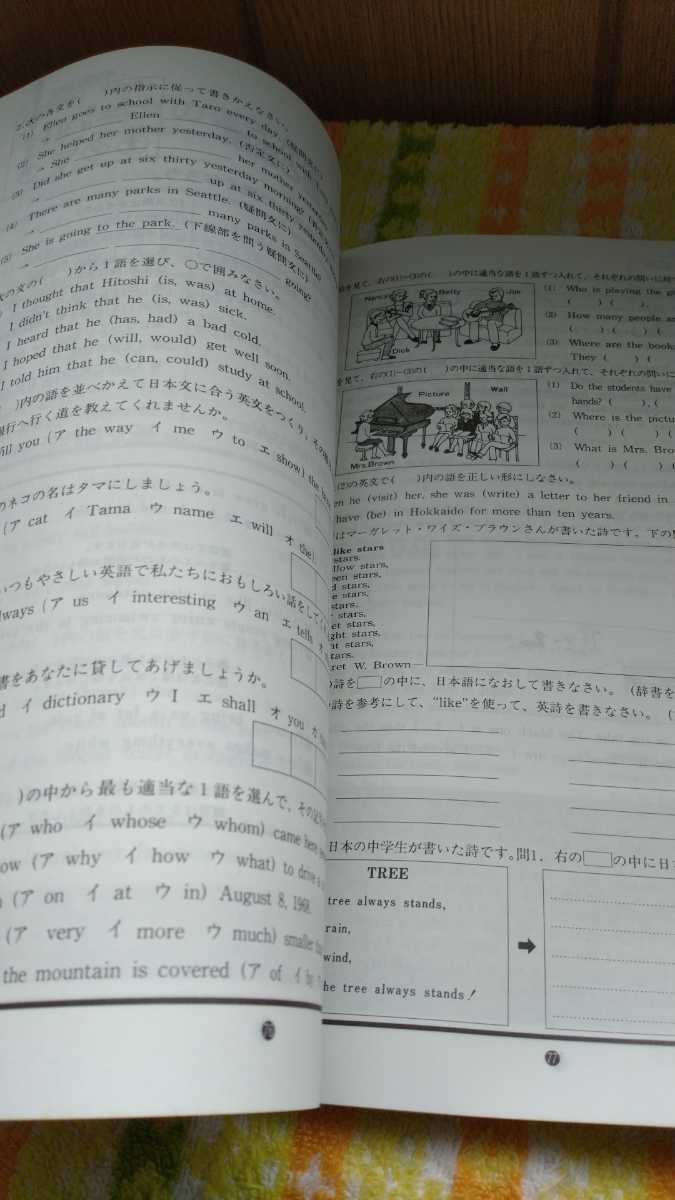 2.次の各文を(　)内の指示に従って書きかえなさい。
(1) Ellen goes to school with Taro every day. (疑問文に)
Ellen to school with
(2) She helped her mother yesterday. (否定文に)
→ She her mother yesterday.
(3) Did she get up at six thirty yesterday morning?
→ up at six thirty yesterday
(4) There are many parks in Seattle. (疑問文に)
→ many parks in Seattle?
(5) She is going to the park. (下線部を問う疑問文に)
→ going?
の文の(　)から1語を選び、○で囲みなさい。
I thought that Hitoshi (is, was) at home.
I didn't think that he (is, was) sick.
I heard that he (has, had) a bad cold.
I hoped that he (will, would) get well soon.
I told him that he (can, could) study at school.
)内の語を並べかえて日本文に合う英文をつくり、その
銀行へ行く道を教えてくれませんか。
ill you (ア the way　イ me　ウ to　エ show) the
のネコの名はタマにしましょう。
(ア cat　イ Tama　ウ name　エ will　オ the)
いつもやさしい英語で私たちにおもしろい話をして
lways (ア us　イ interesting　ウ an　エ tells　オ
書をあなたに貸してあげましょうか。
イ dictionary　ウ I　エ shall　オ you　カ
)の中から最も適当な1語を選んで、その
(ア who　イ whose　ウ whom) came here
ow (ア why　イ how　ウ what) to drive a
(ア on　イ at　ウ in) August 8, 1968.
(ア very　イ more　ウ much) smaller
the mountain is covered (ア of　イ by
76
を見て、右の(1)~(3)の(　)の中に適当な語を1語ずつ入れて、それぞれの問いに対
Nancy
Betty
Jim
Dick
(1) Who is playing the g
(　) (　) (
(2) How many people a
(　) (　) (
(3) Where are the book
They (　) (
を見て、右の(1)~(3)の(　)の中に適当な語を1語ずつ入れて、それぞれの問いに
Picture
Wall
Mrs.Brown
(1) Do the students have
hands? (　), (
(2) Where is the pictu
(　) (　) (
(3) What is Mrs. Brow
(　) (　) (
(2)の英文で(　)内の語を正しい形にしなさい。
en he (visit) her, she was (write) a letter to her friend in
have (be) in Hokkaido for more than ten years.
はマーガレット・ワイズ・ブラウンさんが書いた詩です。下の
like stars
stars.
llow stars,
een stars,
d stars,
e stars,
stars,
et stars,
ght stars,
at stars,
tars.
ret W. Brown—
詩を□の中に、日本語になおして書きなさい。(辞書を
詩を参考にして、“like”を使って、英詩を書きなさい。(
日本の中学生が書いた詩です。問1. 右の□の中に日
TREE
tree always stands,
rain,
wind,
he tree always stands!
➡
77